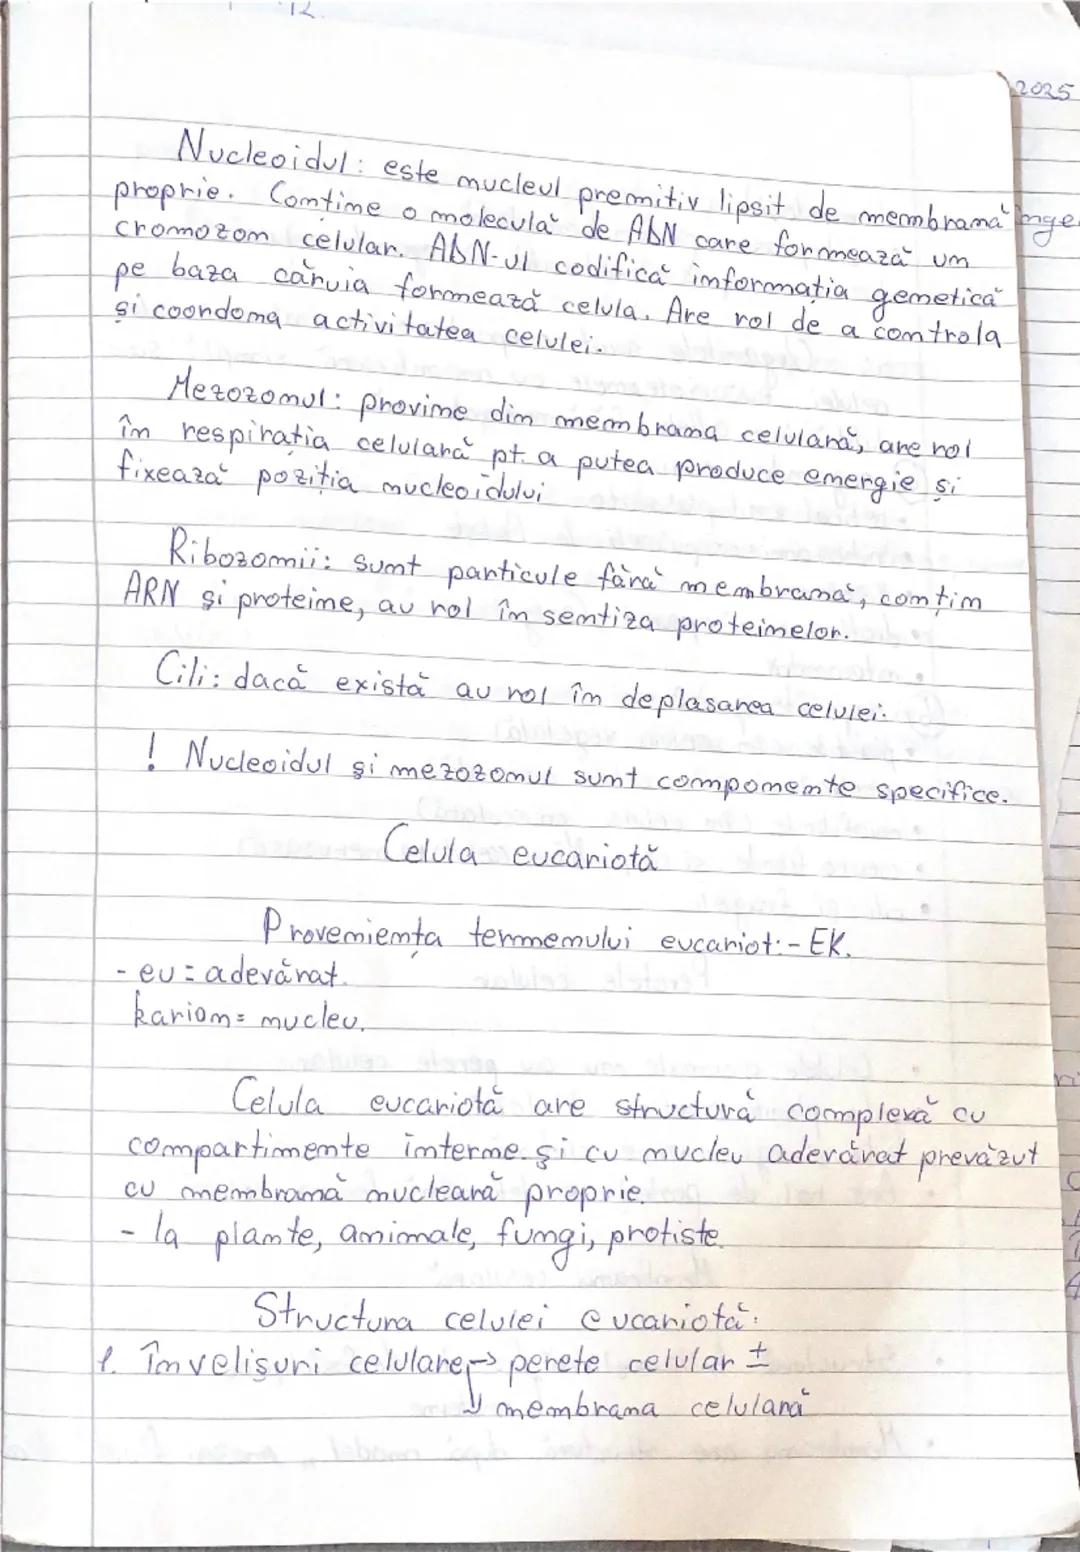 2025
Nucleoidul: este nucleul premitiv lipsit de membrană
proprie. Conține o moleculă de ADN care formează un
cromozom celular. ADN-ul codifică informația genetică
pe baza căruia formează celula. Are rol de a controla
și coordona activitatea celulei.
Mezozomul: provine din membrana celulară, are rol
în respirația celulară pt. a putea produce energie și
fixează poziția nucleoidului
Ribozomii: sunt particule fără membrană, conțin
ARN și proteine, au rol în sentiza proteinelor.
Cili: dacă există au rol în deplasarea celulei.
! Nucleoidul și mezozomul sunt componente specifice.
Celula eucariotă
Proveniența termenului eucariot:- EK.
- eu = adevărat.
karion = nucleu.
Celula eucariotă are structură complexă cu
compartimente interne și cu nucleu adevărat prevăzut
cu membrană nucleară proprie.
- la plante, animale, fungi, protiste.
Structura celulei eucariotă:
1. Învelișuri celulare → perete celular ±
↓ membrana celulară